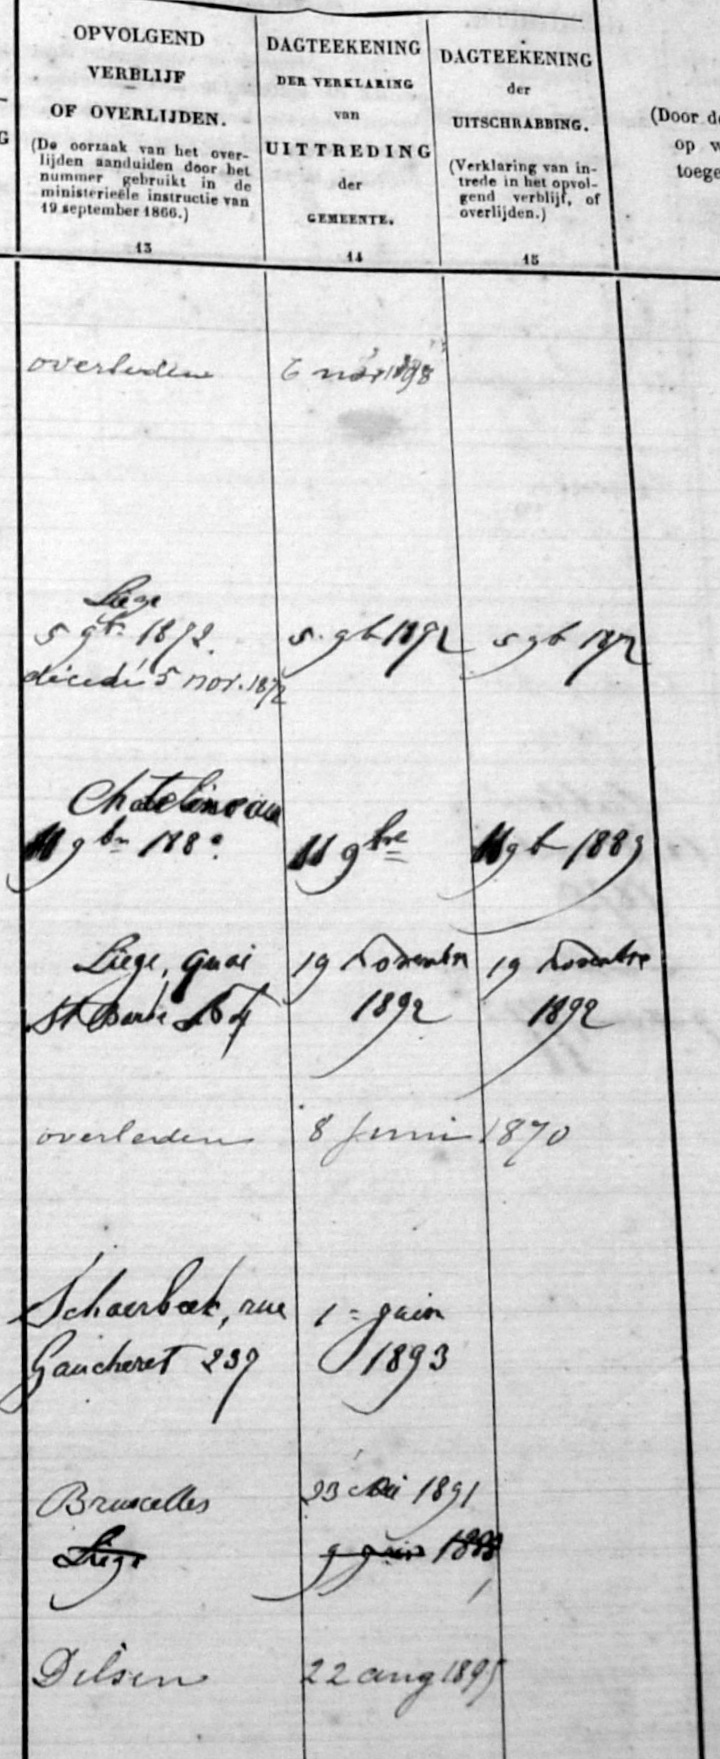 OPVOLGEND
VERBLIJF
OF OVERLIJDEN.
(De oorzaak van het over-
lijden aanduiden door het
nummer gebruikt in de
ministerieële instructie van
19 september 1866.)
13
DAGTEEKENING
DER VERKLARING
van
UITTREDING
der
GEMEENTE.
14
DAGTEEKENING
der
UITSCHRABBING.
(Verklaring van in-
trede in het opvol-
gend verblijf, of
overlijden.)
15
(Door de
op w
toege
G
overleden 6 nov 1898
Liége
5 9br 1892. 5 9b 1892 5 9b 1892
décédé 5 nov. 1872
Chatelineau
11 9br 188 11 9bre 11 9b 1889
Liége, quai 19 Novembre 19 Novembre
St 1892 1892
overleden 8 Juni 1870
Schaerbeek, rue 1 = juin
Gaucheret 237 1893
Bruxelles 23 Mai 1891
Liége 9 juin
Dilsen 22 aug 1895